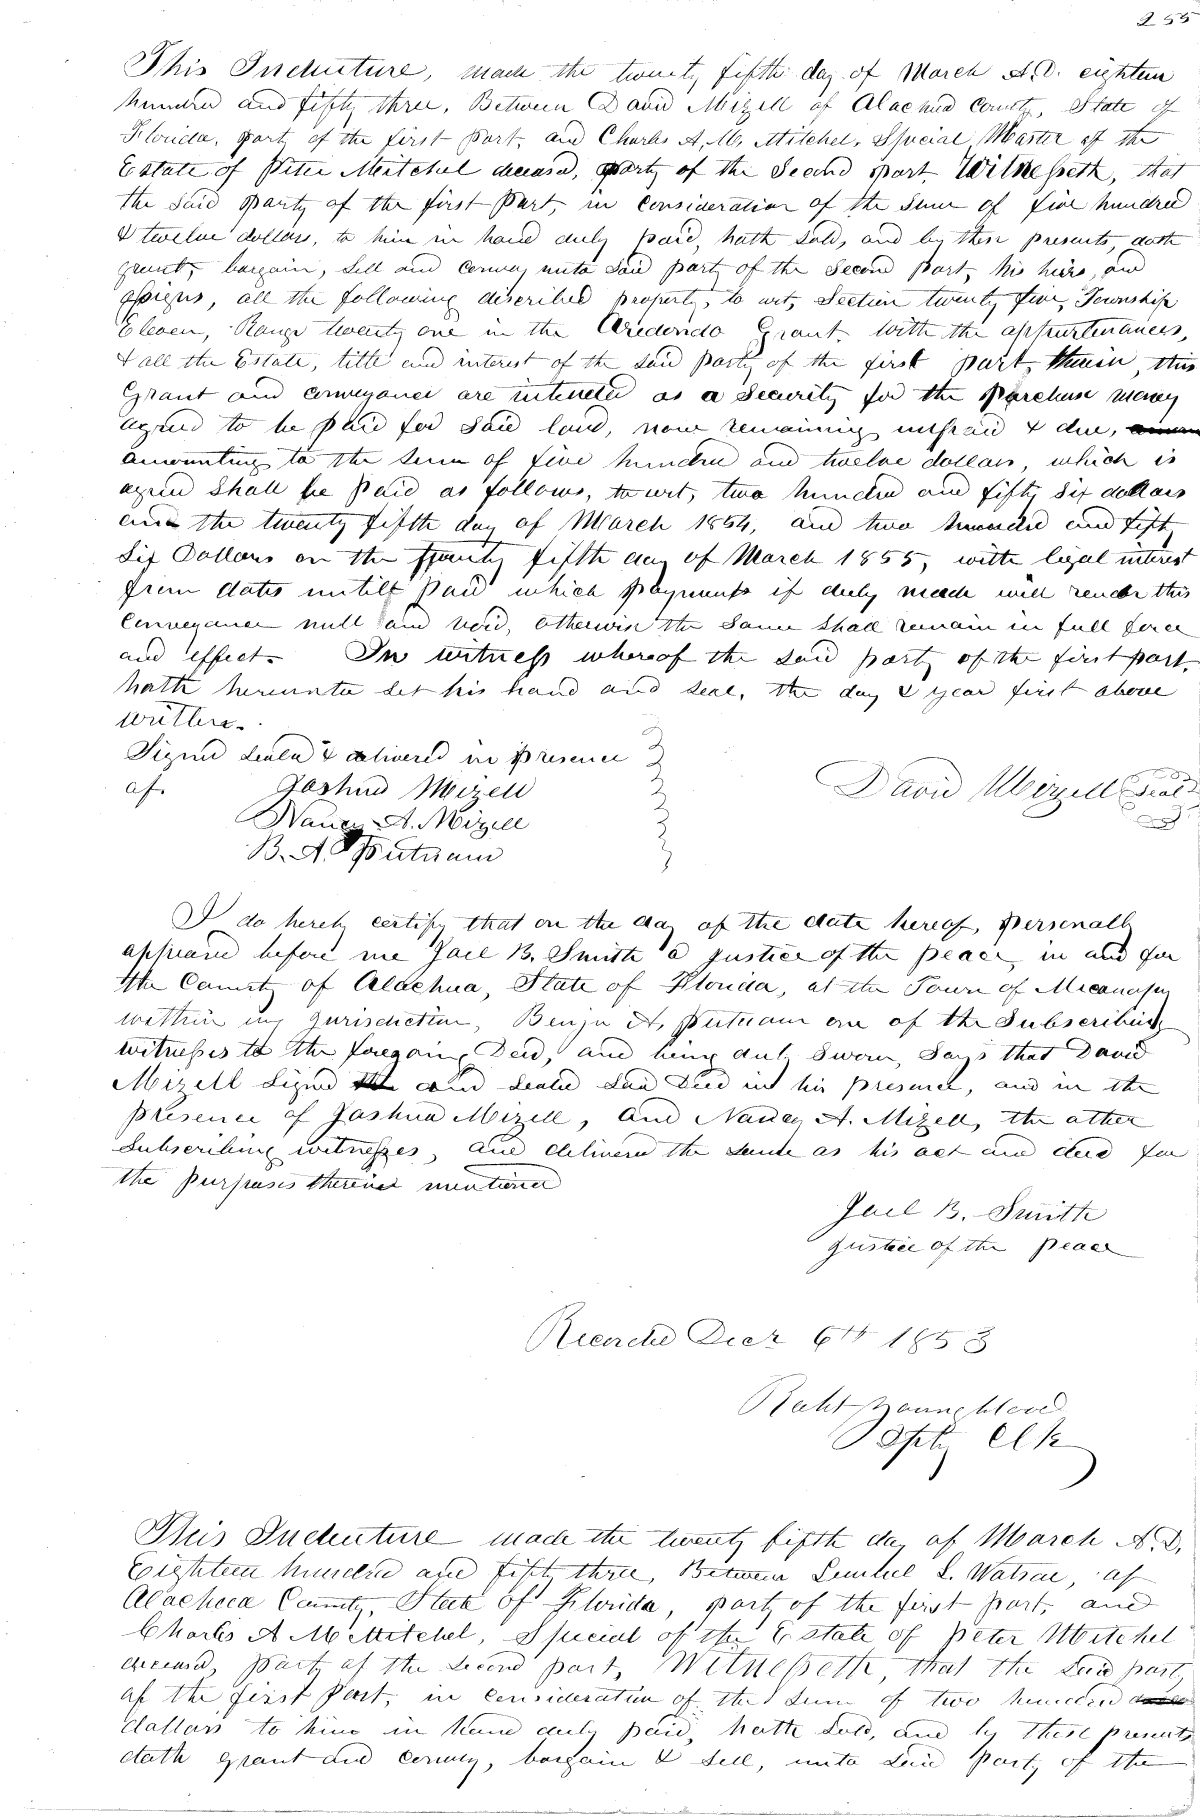 255
This Indenture, made the twenty fifth day of March A.D. eighteen
hundred and fifty three, Between David Mizell of Alachua County, State of
Florida, party of the first part, and Charles A. M. Mitchel, Special Master of the
Estate of Peter Mitchel deceased, party of the Second part, Witnesseth, that
the said party of the first Part, in consideration of the sum of five hundred
& twelve dollars, to him in hand duly paid, hath sold, and by these presents, doth
grant, bargain, sell and convey unto said party of the second part, his heirs, and
assigns, all the following discribed property, to wit, Section twenty five, Township
Eleven, Range twenty one in the Arredondo Grant. With the appurtenances,
& all the Estate, title and interest of the said party of the first part, therein, this
Grant and conveyance are intended as a Security for the Purchase money
agreed to be paid for said land, now remaining unpaid & due,
amounting to the sum of five hundred and twelve dollars, which is
agreed shall be paid as follows, to wit, two hundred and fifty six dollars
on the twenty fifth day of March 1854, and two hundred and fifty
six Dollars on the twenty fifth day of March 1855, with legal interest
from dates untill paid which payments if duly made will render this
conveyance null and void, otherwise the same shall remain in full force
and effect. In witness whereof the said party of the first part,
hath hereunto set his hand and seal, the day & year first above
written.
Signed sealed & delivered in presence
of. Joshua Mizell David Mizell Seal
Nancy A. Mizell
B. A. Putnam
I do hereby certify that on the day of the date hereof, personally
appeared before me Joel B. Smith a justice of the peace, in and for
the County of Alachua, State of Florida, at the Town of Micanopy
within my jurisdiction, Benjn A. Putnam one of the Subscribing
witnesses to the foregoing Deed, and being duly sworn, says that David
Mizell signed and sealed said Deed in his presence, and in the
presence of Joshua Mizell, and Nancy A. Mizell, the other
subscribing witnesses, and delivered the same as his act and deed for
the purposes therein mentioned
Joel B. Smith
justice of the peace
Recorded Decr 6th 1853
Robt Youngblood
Dpty Clk
This Indenture made the twenty fifth day of March A.D.
Eighteen hundred and fifty three, Between Lemuel S. Watson, of
Alachua County, State of Florida, party of the first part, and
Charles A M Mitchel, Special of the Estate of Peter Mitchel
deceased, party of the second part, Witnesseth, that the said party
of the first Part, in consideration of the sum of two hundred
dollars to him in hand duly paid, hath sold, and by these presents
doth grant and convey, bargain & sell, unto said party of the